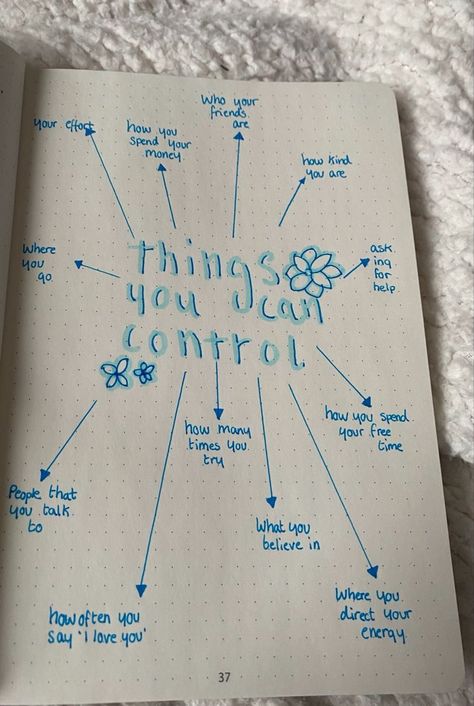 things
you can
control
your effort
how you
spend your
money
Who your
friends
are
how kind
you are
ask
ing
for
help
how you spend
your free
time
Where you
direct your
energy
What you
believe in
how many
times you
try
how often you
say 'I love you'
People that
you talk
to
Where
you
go
37